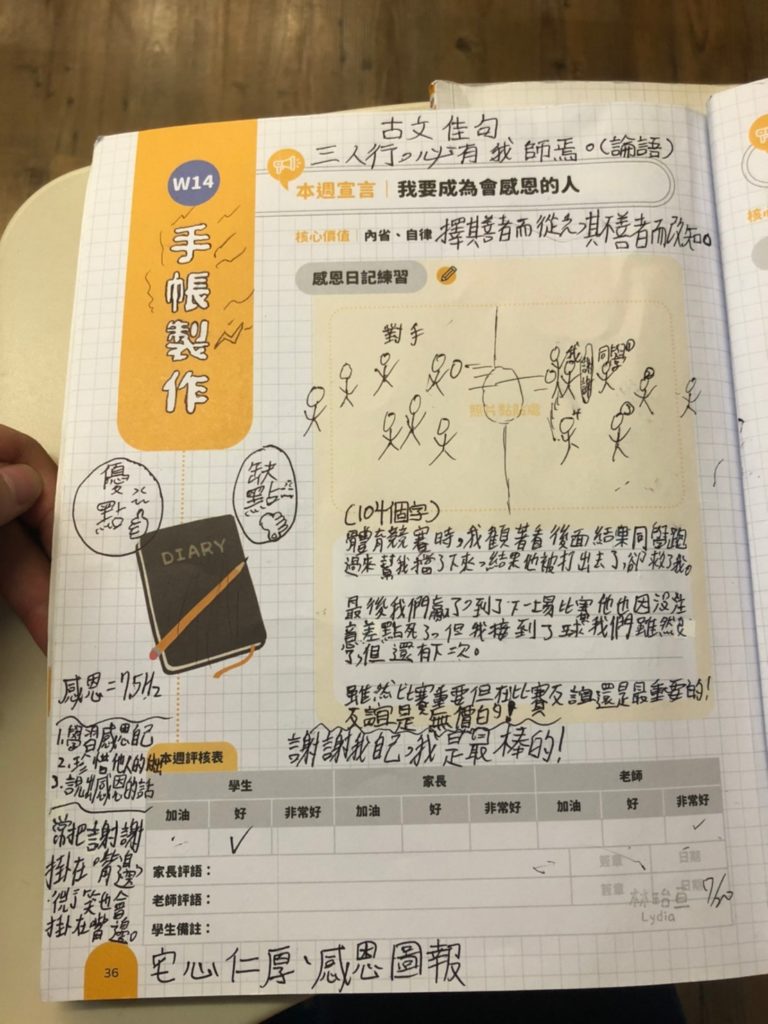 古文佳句
三人行。必有我師焉。(論語)
W14
手帳製作
本週宣言 | 我要成為會感恩的人
核心價值 | 內省、自律
擇其善者而從之,其不善者而改知。
感恩日記練習
對手
我
謝謝
同學
照片黏貼處
優點
缺點
DIARY
(104個字)
體育競賽時,我顧著看後面結果同學跑
過來幫我擋了下來,結果他被打出去了,卻救了我。
最後我們贏了到了下一場比賽他也因沒注
意差點死了,但我接到了球我們雖然
了,但還有下次。
雖然比賽重要但在比賽友誼還是最重要的!
友誼是無價的!
謝謝我自己,我是最棒的!
感恩=7.5Hz
1.學習感恩自己
2.珍惜他人的
3.說出感恩的話
常把謝謝
掛在嘴邊,
微笑也會
掛在嘴邊。
本週評核表
學生 家長 老師
加油 好 非常好 加油 好 非常好 加油 好 非常好
家長評語:
簽章 日期
老師評語:
簽章 日期
Lydia
學生備註:
36
宅心仁厚、感恩圖報